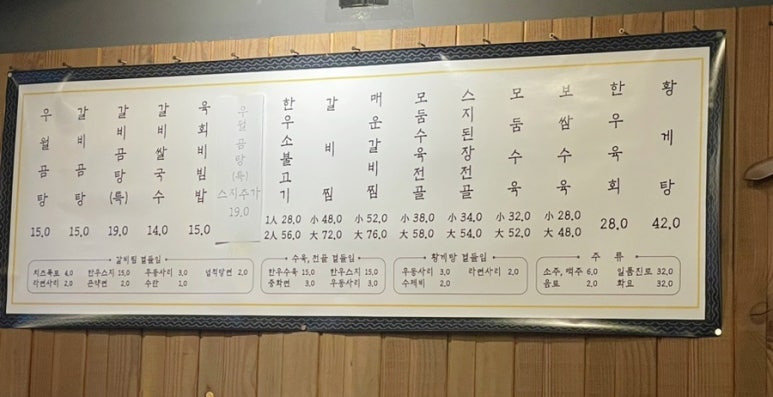 우월곰탕 15.0
갈비곰탕 15.0
갈비곰탕(특) 19.0
갈비쌀국수 14.0
육회비빔밥 15.0
우월곰탕(특) 스지추가 19.0
한우소불고기 1人 28.0 2人 56.0
갈비찜 小 48.0 大 72.0
매운갈비찜 小 52.0 大 76.0
모둠수육전골 小 38.0 大 58.0
스지된장전골 小 34.0 大 54.0
모둠수육 小 32.0 大 52.0
보쌈수육 小 28.0 大 48.0
한우육회 28.0
황게탕 42.0
갈비찜 곁들임
치즈폭포 4.0 한우스지 15.0 우동사리 3.0 넙적당면 2.0
라면사리 2.0 곤약면 2.0 수란 1.0
수육, 전골 곁들임
한우수육 15.0 한우스지 15.0
중화면 3.0 우동사리 3.0
황게탕 곁들임
우동사리 3.0 라면사리 2.0
수제비 2.0
주 류
소주, 맥주 6.0 일품진로 32.0
음료 2.0 화요 32.0